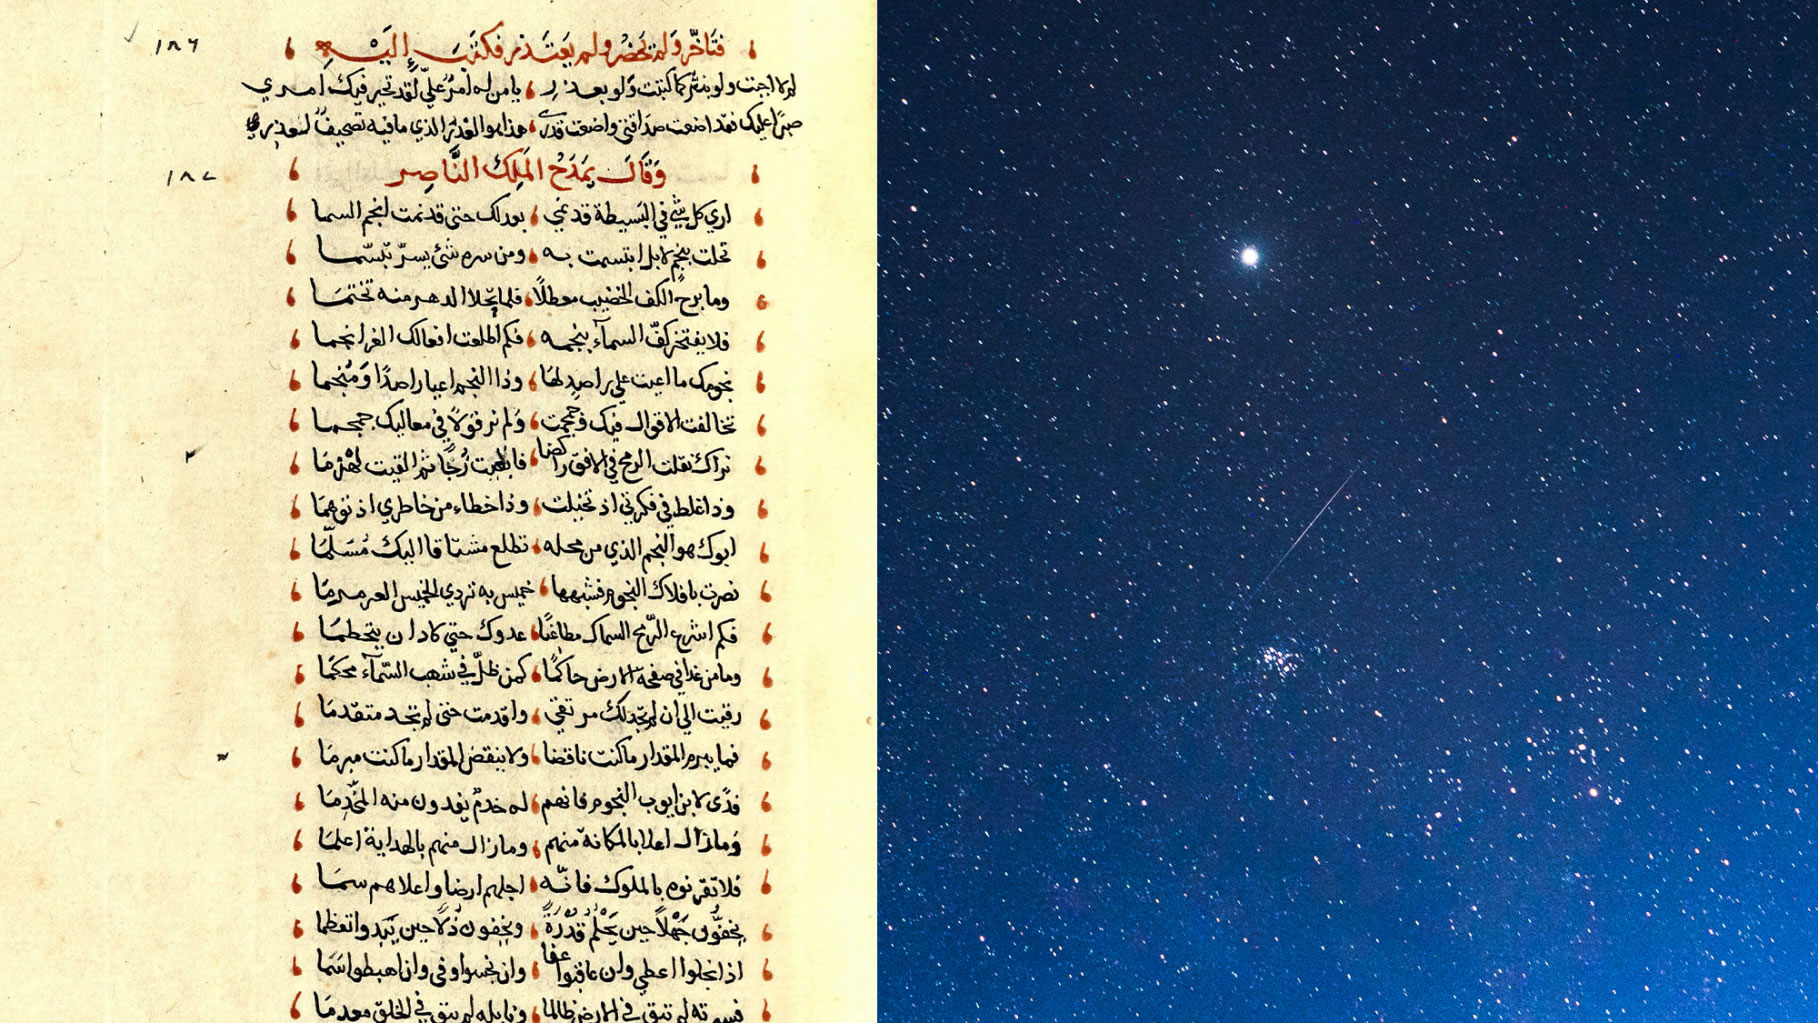 ١٨٦ فتَاخّر وَلم يَحضُر ولم يَعتَذر فكتَبَ إليَهِْ
لم لا اجبت ولو بنثر كما كتبت وَلو بعذر يا من له امرٌ عليّ لقد تحير فيك امري
صبرًا عليك فقد اضعت صدَاقتي واضعت قدري هذا هو الغدر الذي ما فيه تصحيفٌ لعذري
١٨٧ وَقَالَ يمَدَحُ المَلِكَ النَّاصِر
اري كل شيٍ في البَسيطة قد نمي بعدلك حتى قد نمت انجم السما
تحلت بنجمٍ لا بل ابتسمت به ومن سره شئ يسرّ تبسّما
وما برح الكف الخضيب معطلًا فلما تحلا الدهر منه تختمَا
فلا يفتخر كفّ السمآء بنجمه فكم اطلعت افعالك الغر انجما
نجومك ما اعيت علي راصدٍ لهَا وذا النجم اعيا راصدًا وَمُنجما
تخالفت الاقوال فيك وجمجمت وَلم نر قولًا في معاليك جمجما
نراك نقلت الرمح في الافق راكضا فابقيت زُجًا ثم القيت لهْذمَا
وذا غلط في فكرتي اذ تخيلت وذا خطاء من خاطري اذ توهمَا
ابوك هو النجم الذي من محله تطلع مشتاقا اليك مُسَلّمًا
نصرت بافلاك النجوم فشبهها خميس به تردي الخميس العرمرمَا
فكم اشرع الرّمح السماك مطاعنًا عدوك حتي كاد ان يتحطمَا
وما من غدا في صفحة الارض حاكمًا كمن ظلّ في شهب السّمآء محكمَا
رقيت الي ان لم تجد لك مرتقي واقدمت حتى لم تجد متقدمَا
فما يبرم المقدار ما كنت ناقضا ولا ينقض المقدار ما كنت مبرمَا
فدًى لابن ايوب النجوم فانهم له خدمٌ يفدون منه المخّدمَا
وَما زال اعلا بالمكانة منهم وما زال منهم بالهداية اعلمَا
فلا تقرنوه بالملوك فانّه اجلهم ارضا واعلاهم سمَا
يخفّون جَهْلًا حين يَحْلُم قُدْرَةً ويخفون ذُلًا حين يَبَدوا تعظما
اذا بخلوا اعطي وان عاقبوا عفا وان نجسوا وفى وان هبطوا سَمَا
لم تبق في الارض ظالما ونايله لم يبق في الخلق معدمَا